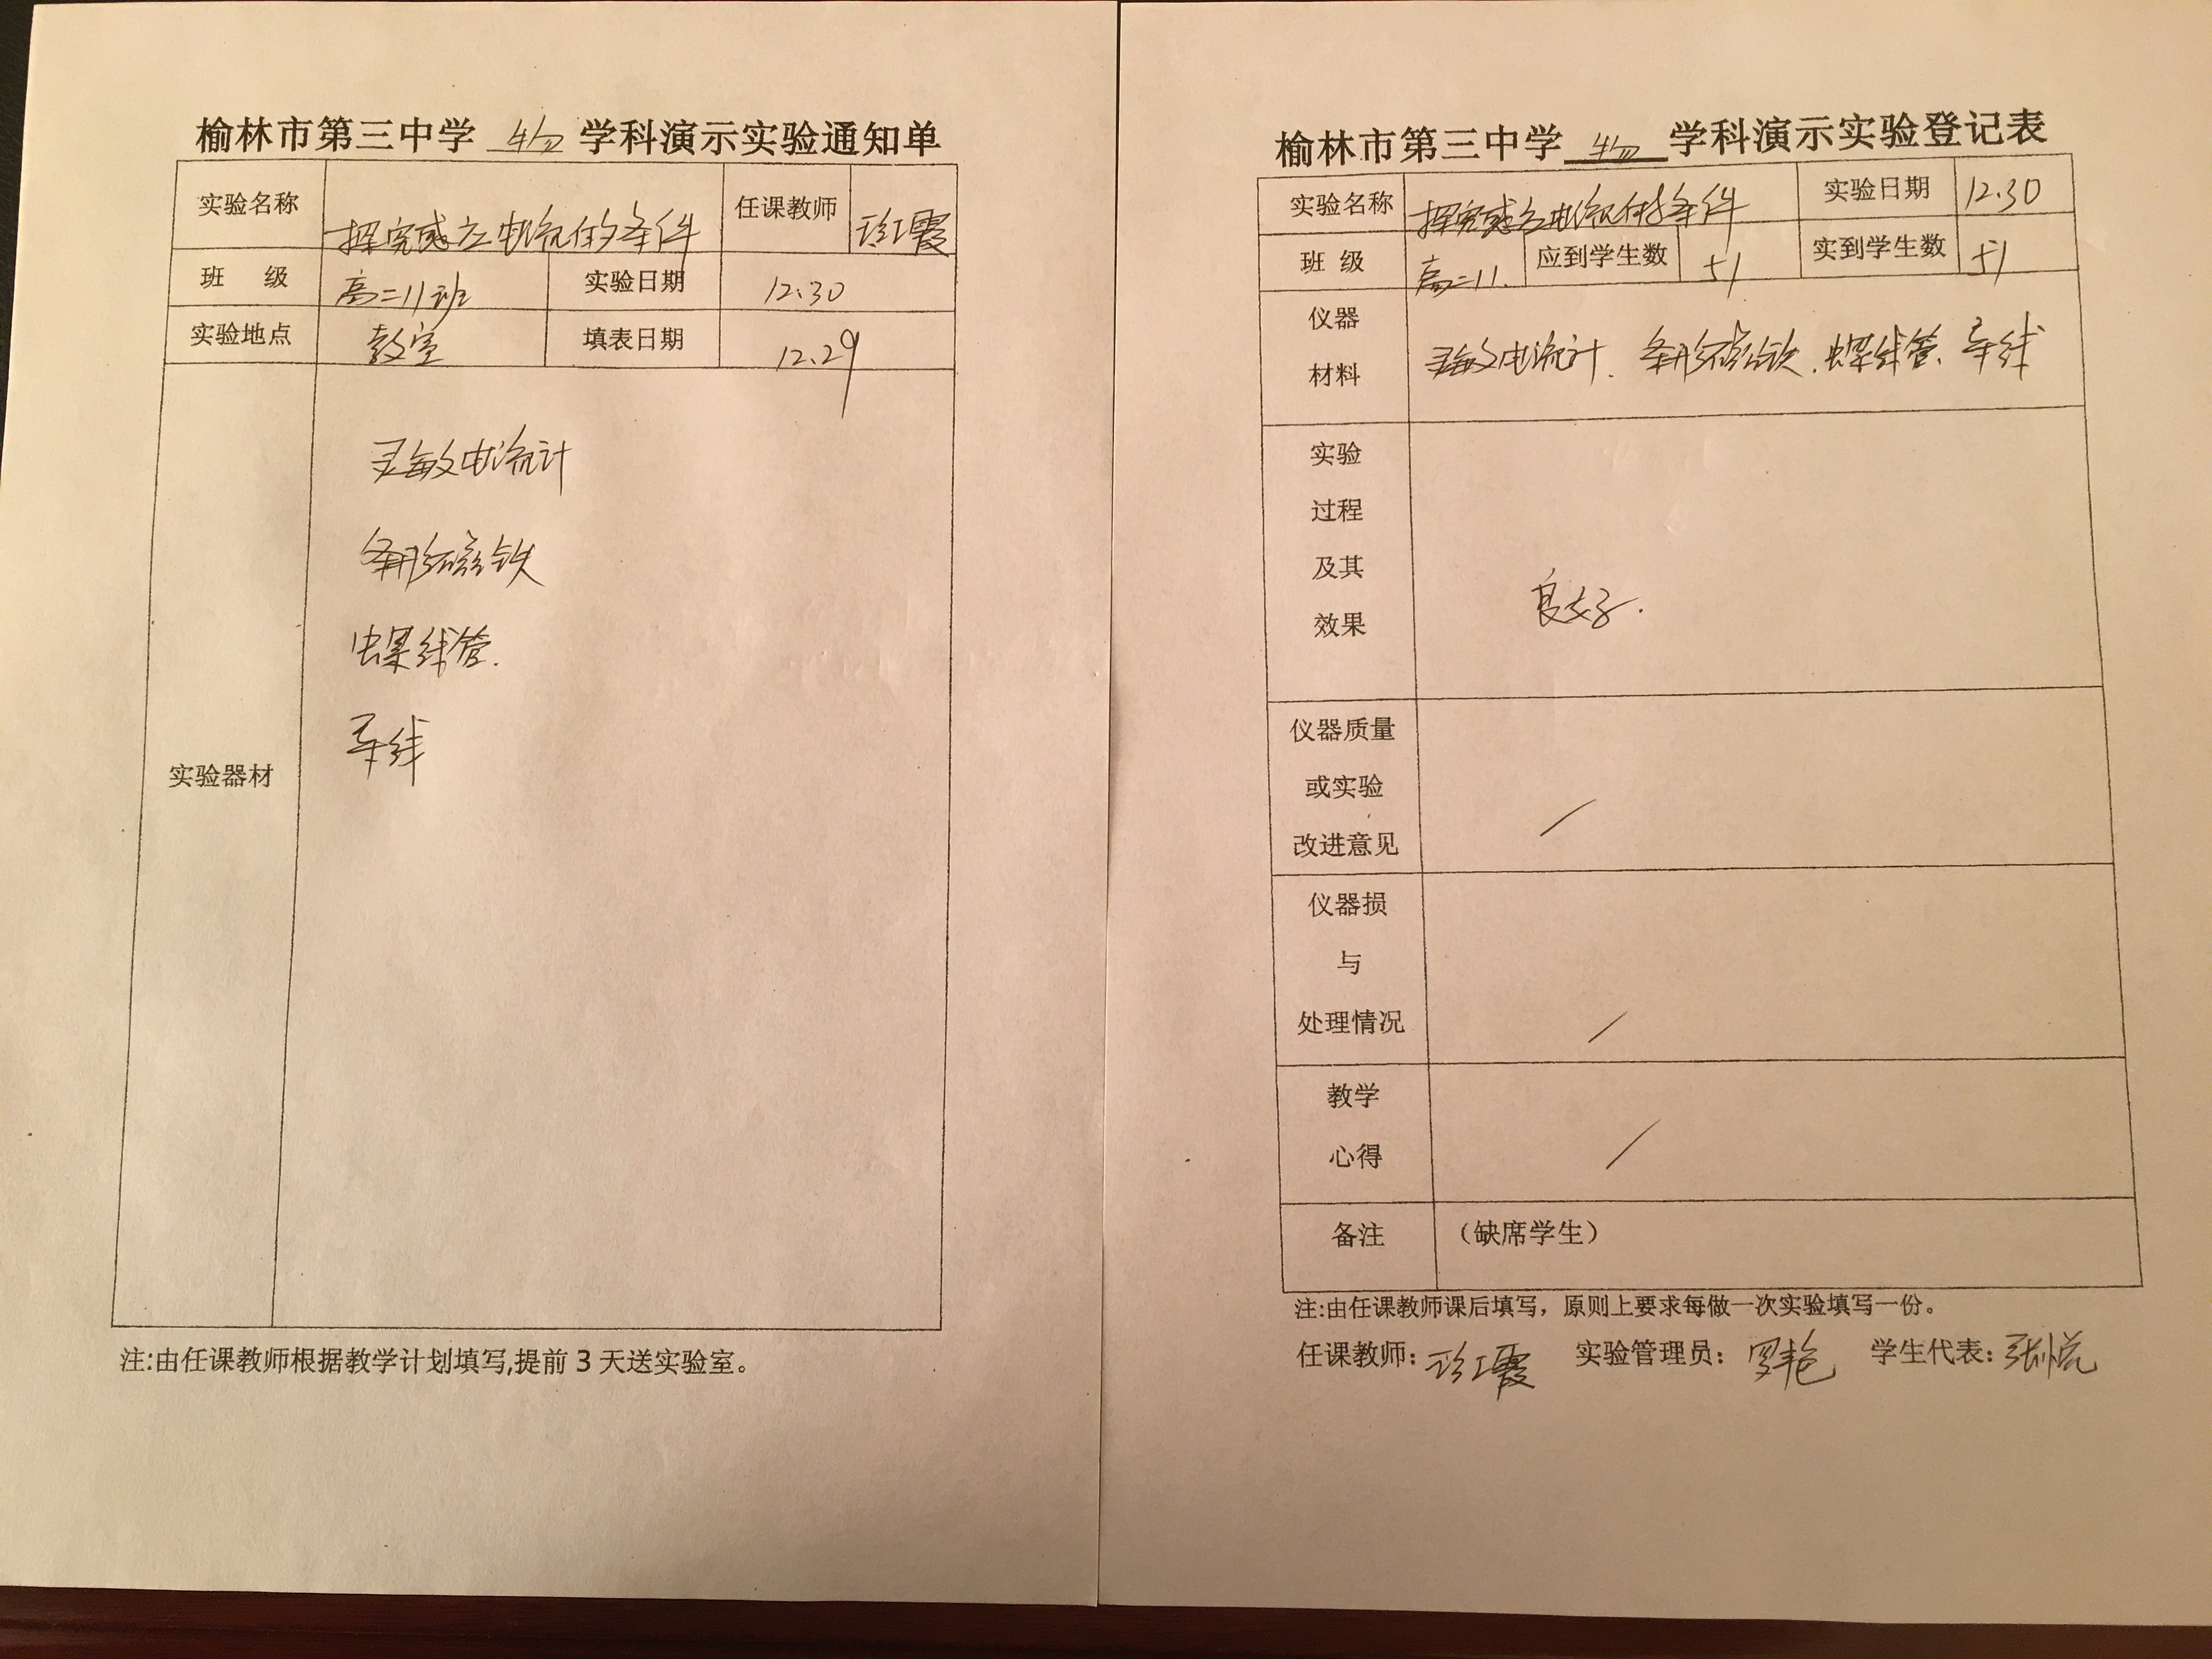 榆林市第三中学 物 学科演示实验通知单
实验名称 探究感应电流的条件 任课教师 霞
班 级 高二11班 实验日期 12.30
实验地点 教室 填表日期 12.29
实验器材
灵敏电流计
条形磁铁
螺线管.
导线
注:由任课教师根据教学计划填写,提前 3 天送实验室。
榆林市第三中学 物 学科演示实验登记表
实验名称 探究感应电流的条件 实验日期 12.30
班 级 高二11. 应到学生数 51 实到学生数 51
仪器
材料
灵敏电流计. 条形磁铁. 螺线管. 导线
实验
过程
及其
效果
良好.
仪器质量
或实验
改进意见
/
仪器损
与
处理情况
/
教学
心得
/
备注 （缺席学生）
注:由任课教师课后填写，原则上要求每做一次实验填写一份。
任课教师: 霞 实验管理员: 罗艳 学生代表: 张悦